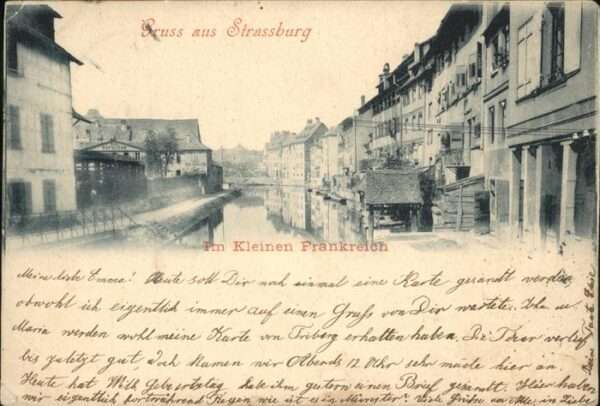 Gruss aus Strassburg
Im Kleinen Frankreich
Meine liebe Emma! Heute soll Dir noch einmal eine Karte gesandt werden
obwohl ich eigentlich immer auf einen Gruss von Dir wartete.
Maria werden wohl meine Karte von Triberg erhalten haben. Die Tour verlief
bis zuletzt gut, doch kamen wir Abends 12 Uhr sehr müde hier an
Heute hat Willi Geburtstag habe ihm gestern einen Brief gesandt. Hier haben
wir eigentlich fortwährend Regen wie ist es in Münster? Viele Grüße an Alle, in Liebe